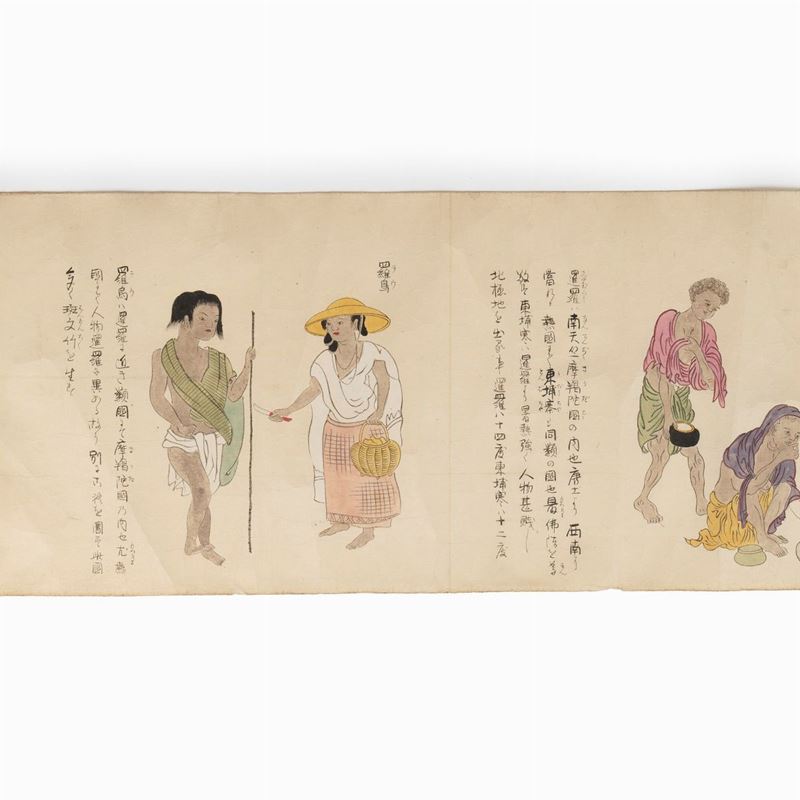 暹羅ハ南天竺摩羯陀國の内也唐土より西南に
當れり熱國にて東埔寨と同類の國也最佛法を尊
敬す東埔寨ハ暹羅より暑熱強く人物甚賤し
北極地を出る事暹羅ハ十四度東埔寨ハ十二度
羅烏
羅烏ハ暹羅に近き類國にて摩羯陀國乃内也尤熱
國にて人物暹羅に異ならす故に別に 此國
多く斑文竹を生す